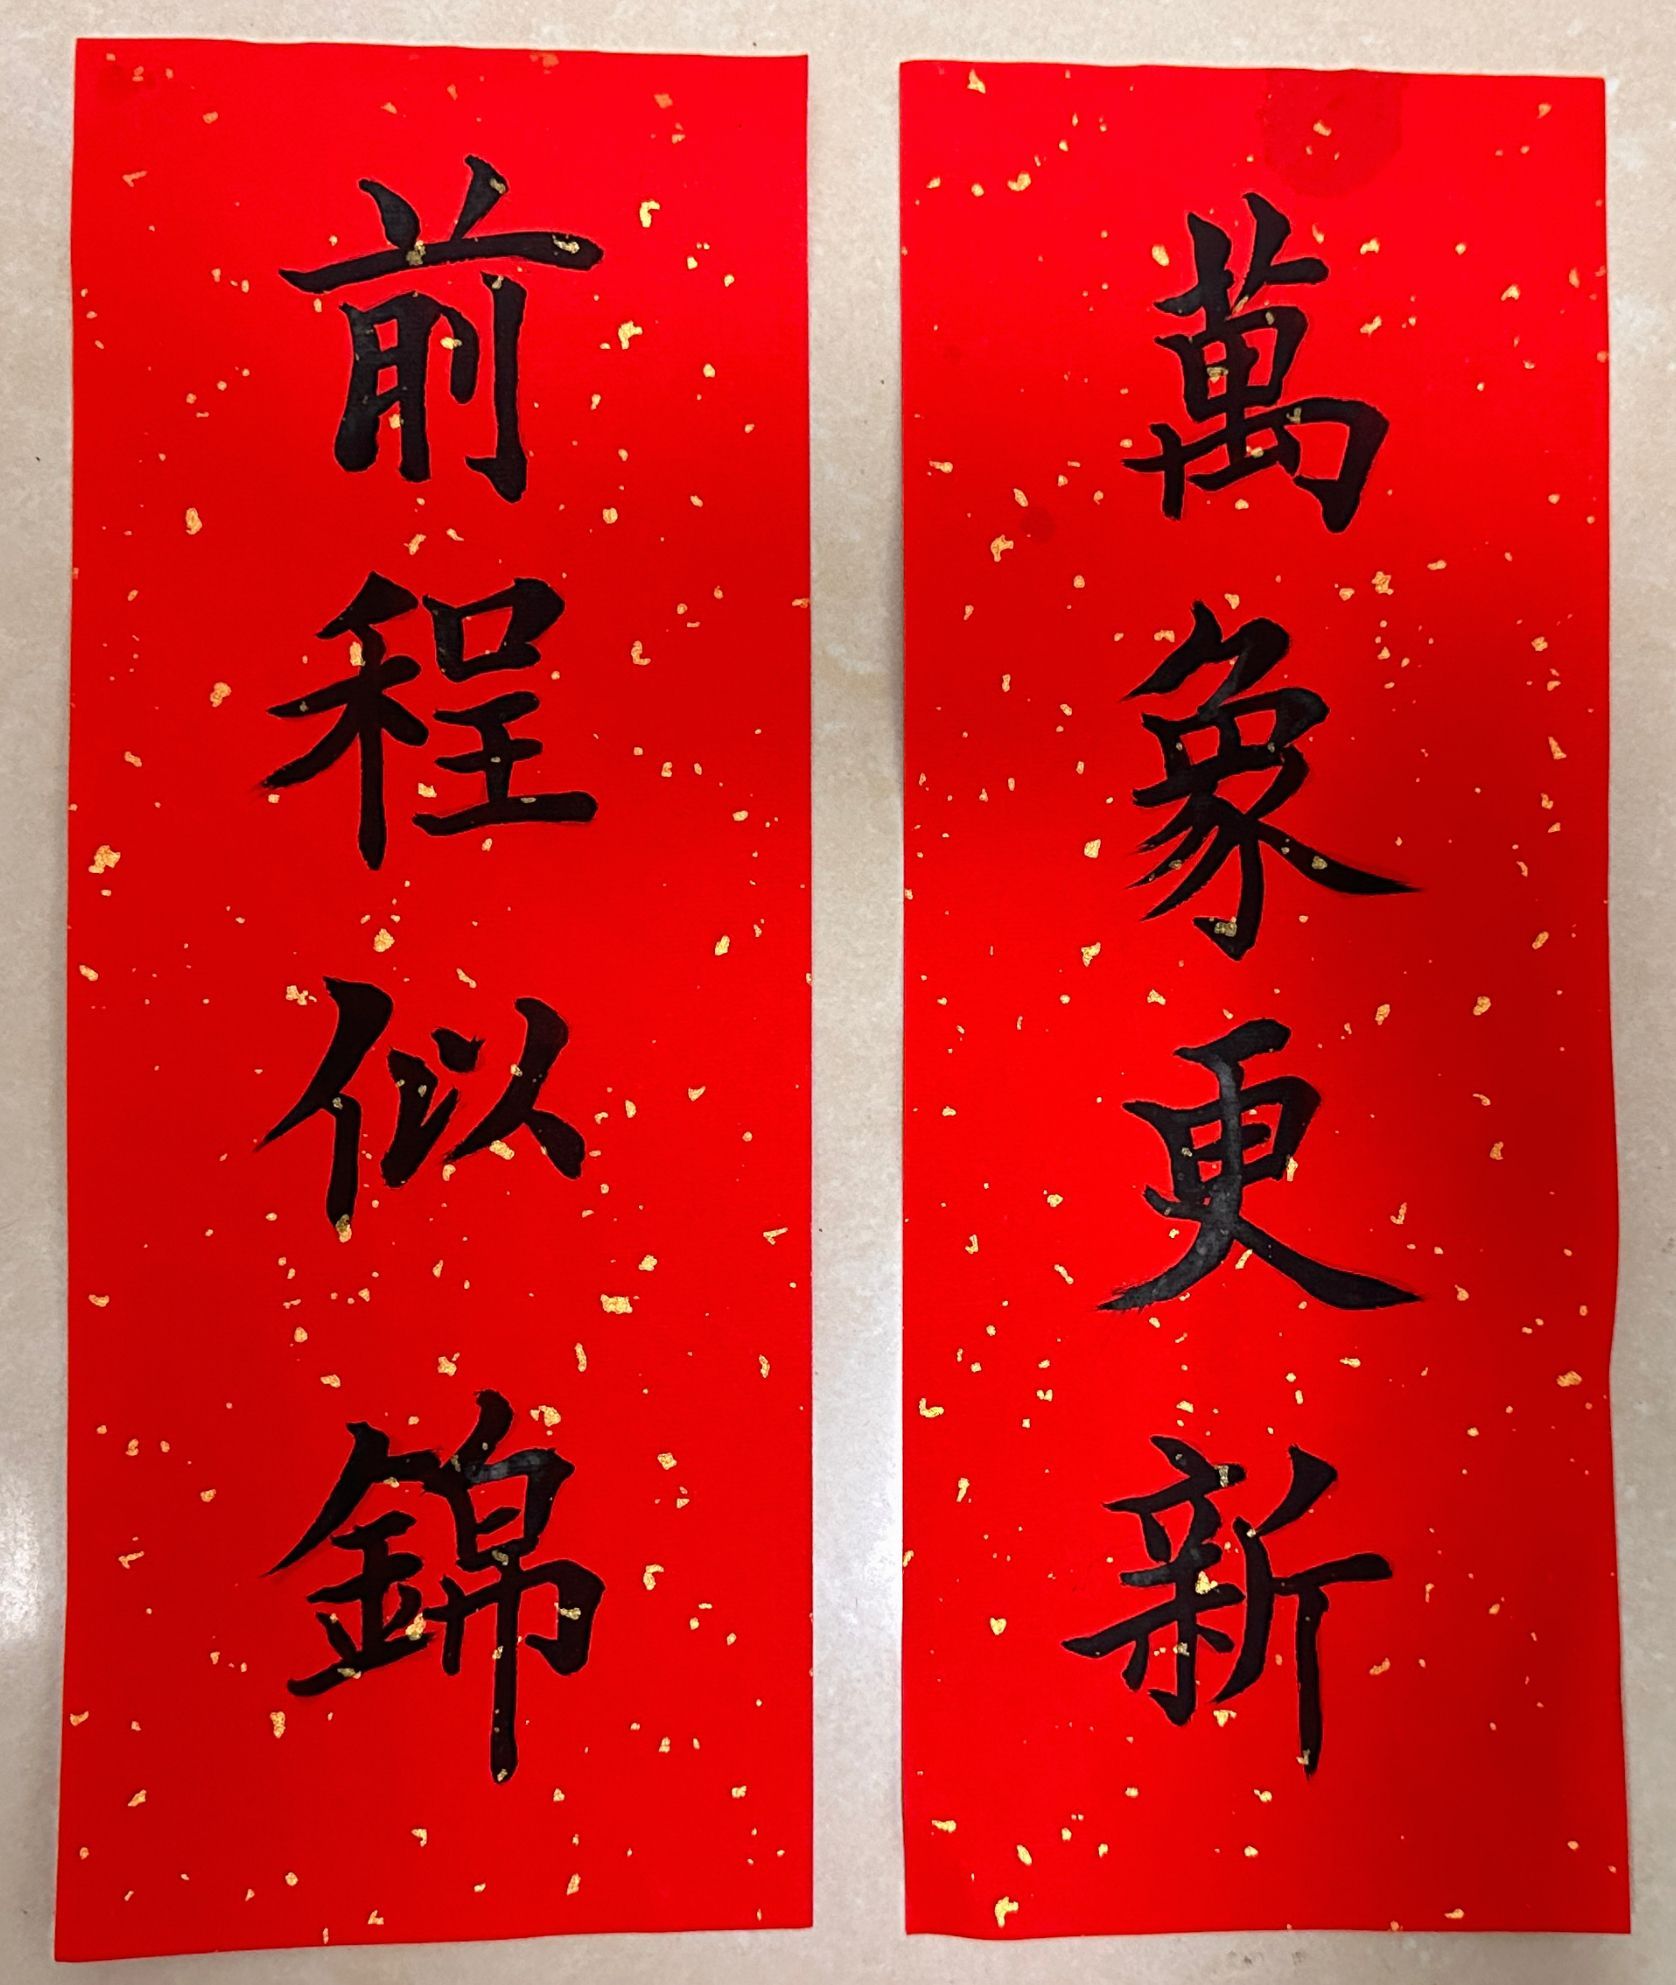 萬象更新
前程似錦